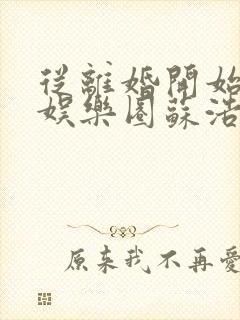 從離婚開始
娛樂圈蘇浩
原來我不再愛